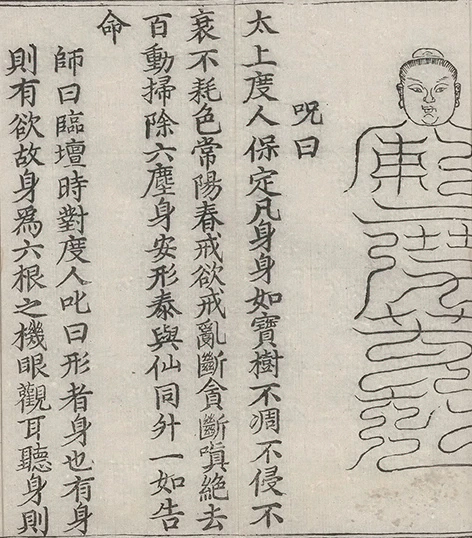 咒曰
太上度人保定凡身身如寶樹不凋不侵不
衰不耗色常陽春戒欲戒亂斷貪斷嗔絶去
百動掃除六塵身安形泰與仙同升一如告
命
師曰臨壇時對度人叱曰形者身也有身
則有欲故身爲六根之機眼觀耳聽身則